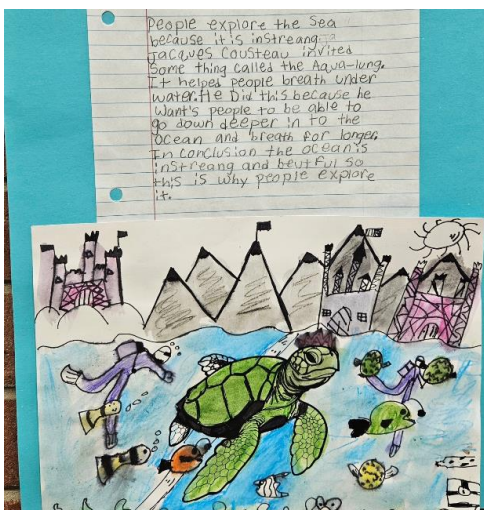 People explore the Sea
because it is instreang
Jacques Cousteau invited
Some thing called the Aqua-lung.
It helped people breath under
water. He Did this because he
Want's people to be able to
go down deeper in to the
Ocean and breath for longer.
In conclusion the ocean is
instreang and beutful so
this is why people explore
it.